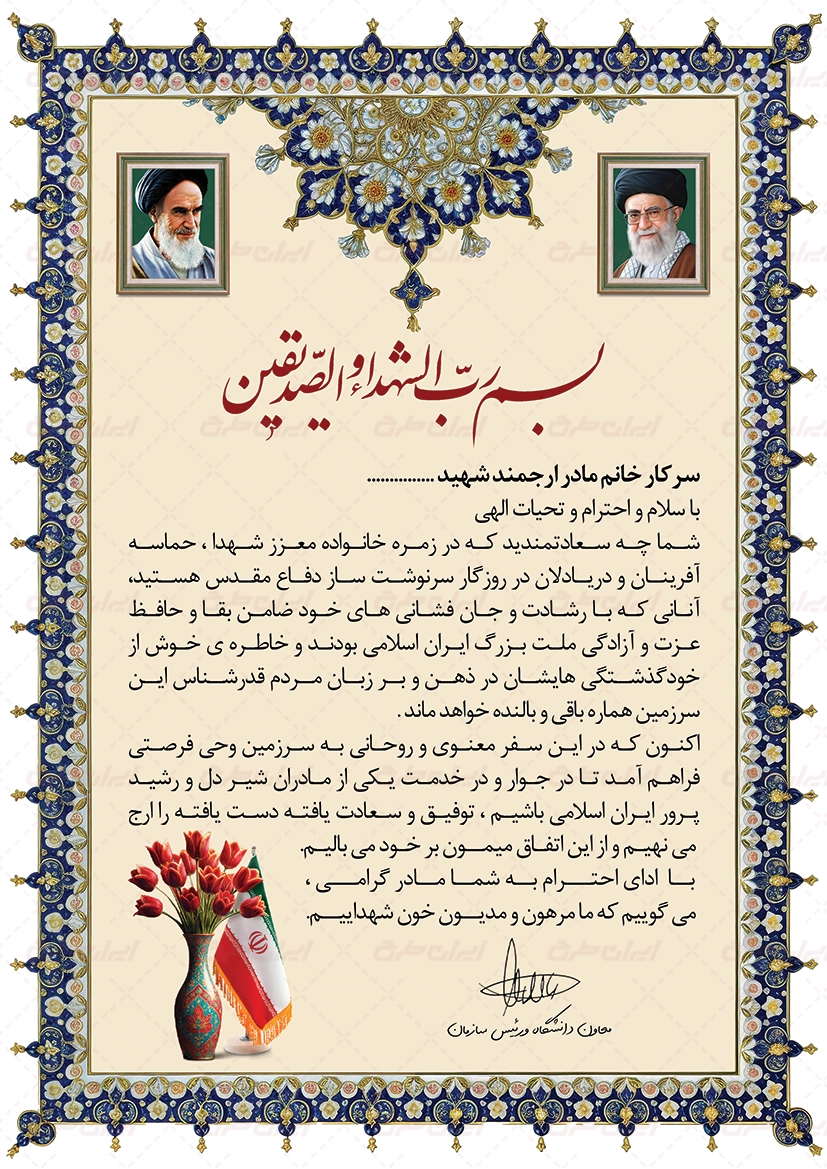 بسم ربّ الشهداء و الصّدیقین
سرکار خانم مادر ارجمند شهید ...............
با سلام و احترام و تحیات الهی
شما چه سعادتمندید که در زمره خانواده معزز شهدا ، حماسه
آفرینان و دریادلان در روزگار سرنوشت ساز دفاع مقدس هستید،
آنانی که با رشادت و جان فشانی های خود ضامن بقا و حافظ
عزت و آزادگی ملت بزرگ ایران اسلامی بودند و خاطره ی خوش از
خودگذشتگی هایشان در ذهن و بر زبان مردم قدرشناس این
سرزمین هماره باقی و بالنده خواهد ماند .
اکنون که در این سفر معنوی و روحانی به سرزمین وحی فرصتی
فراهم آمد تا در جوار و در خدمت یکی از مادران شیر دل و رشید
پرور ایران اسلامی باشیم ، توفیق و سعادت یافته دست یافته را ارج
می نهیم و از این اتفاق میمون بر خود می بالیم.
با ادای احترام به شما مادر گرامی ،
می گوییم که ما مرهون و مدیون خون شهداییم.
معاون دانشگاه و رئیس سازمان
ایران طرح